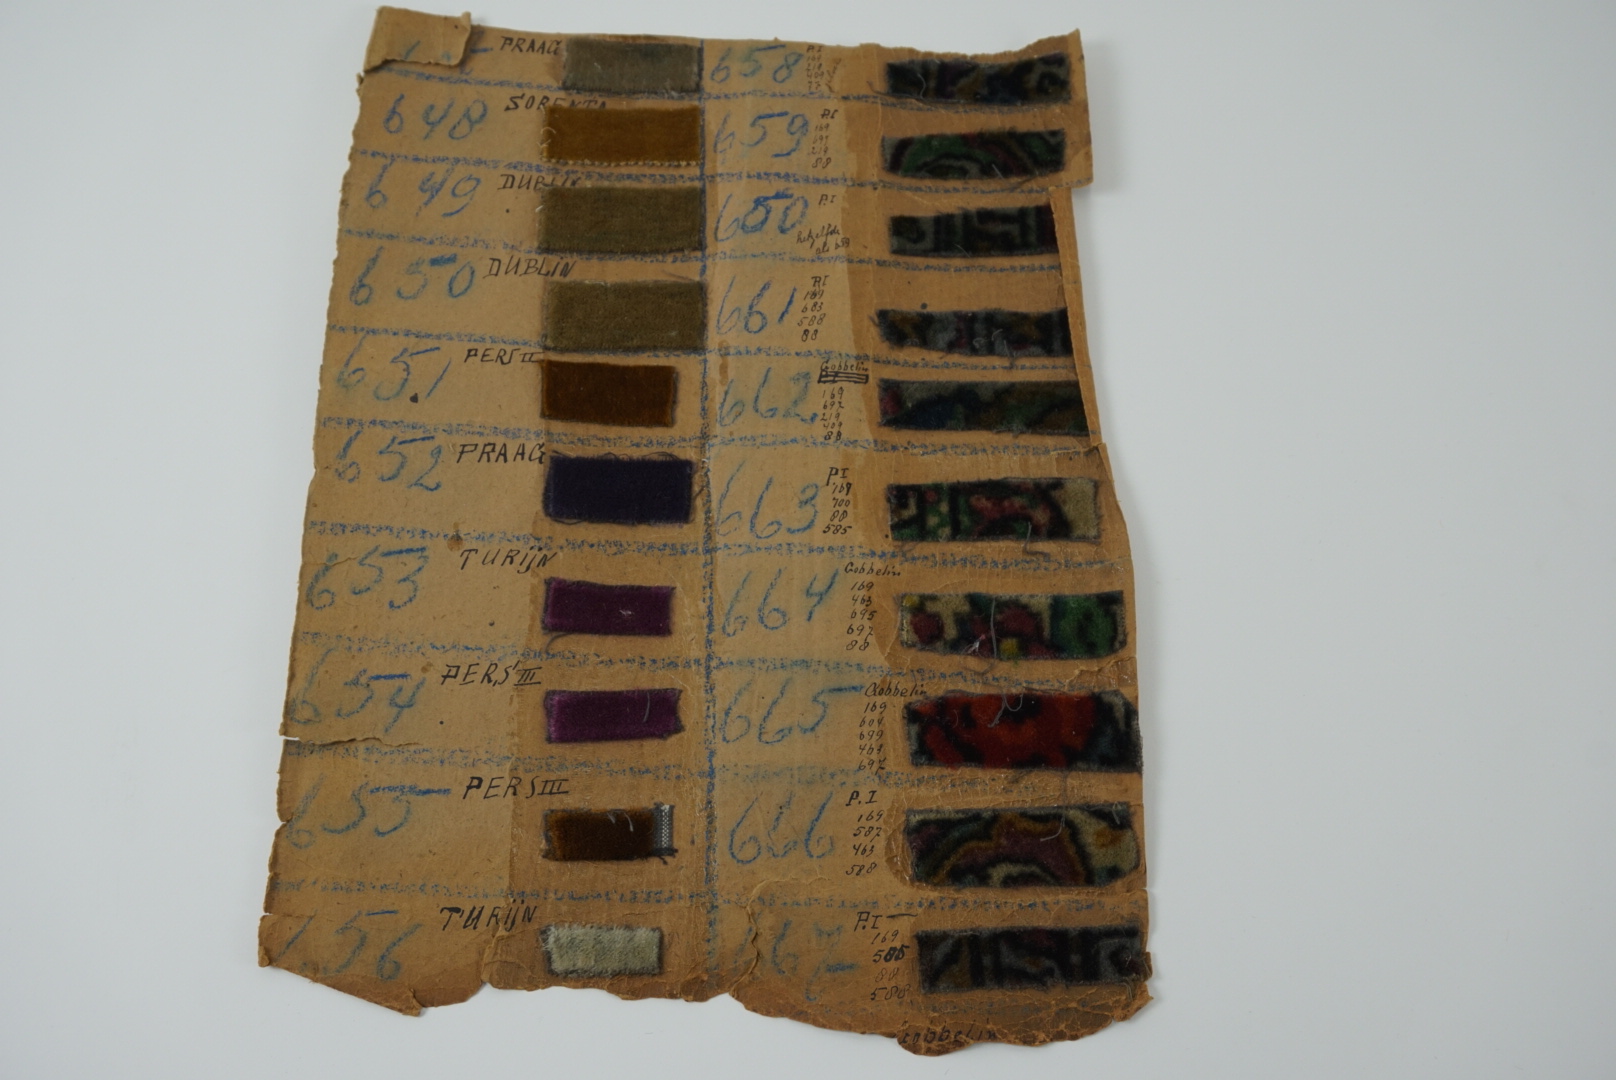 PRAAG
648 SORENTO
649 DUBLIN
650 DUBLIN
651 PERS II
652 PRAAG
653 TURIJN
654 PERS III
655 PERS III
656 TURIJN
658 P.I
169
219
409
659 P.I
169
697
219
88
650 P.I
hetzelfde
als 659
661 P.I
169
683
588
88
662 Gobbelin
169
697
219
409
88
663 P.I
169
700
88
585
664 Gobbelin
169
463
695
697
88
665 Gobbelin
169
604
699
463
697
666 P.I
169
587
463
588
667 P.I
169
585
88
588
Gobbelin